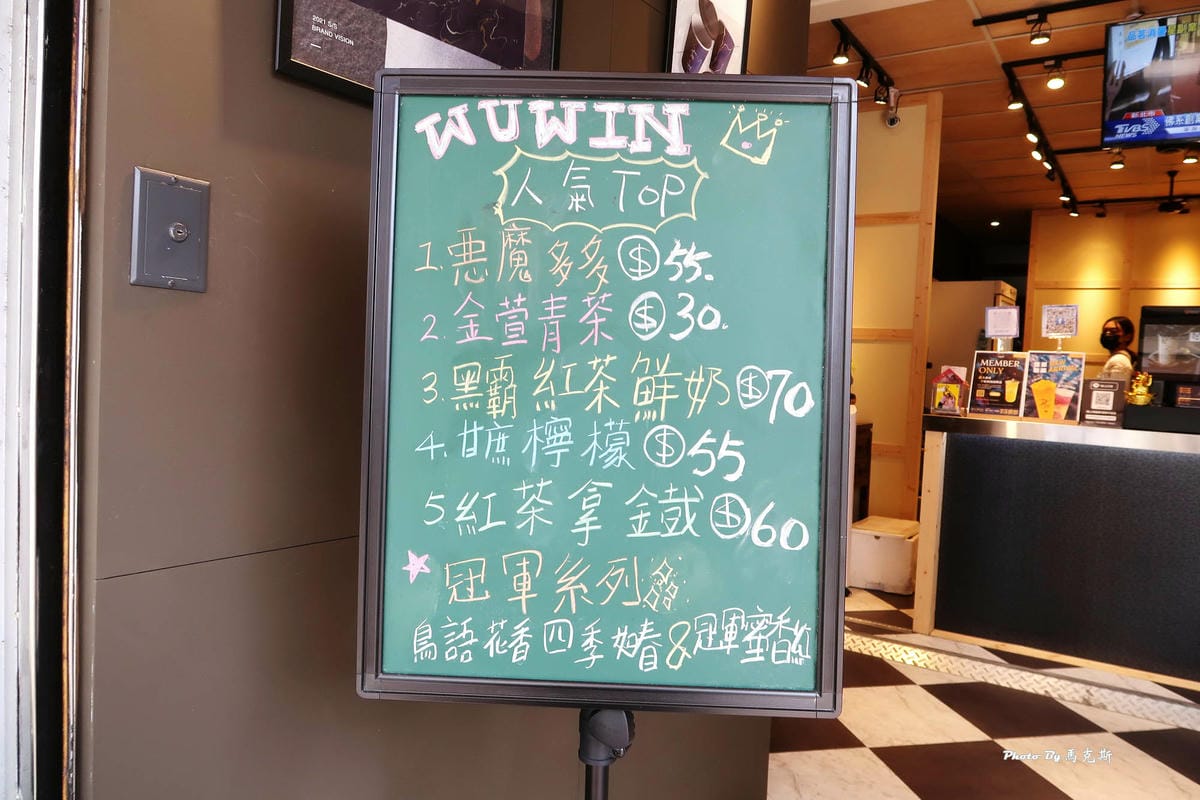 2021 S/S
BRAND VISION
WUWIN
人氣 TOP
1.悪魔多多 $55.
2.金萱青茶 $30.
3.黑霸紅茶鮮奶 $70
4.甘蔗檸檬 $55
5.紅茶拿鐵 $60
冠軍系列
鳥語花香四季如春&冠軍蜜香紅
新北市
TVBS
NEWS
MEMBER
ONLY
Photo By 馬克斯